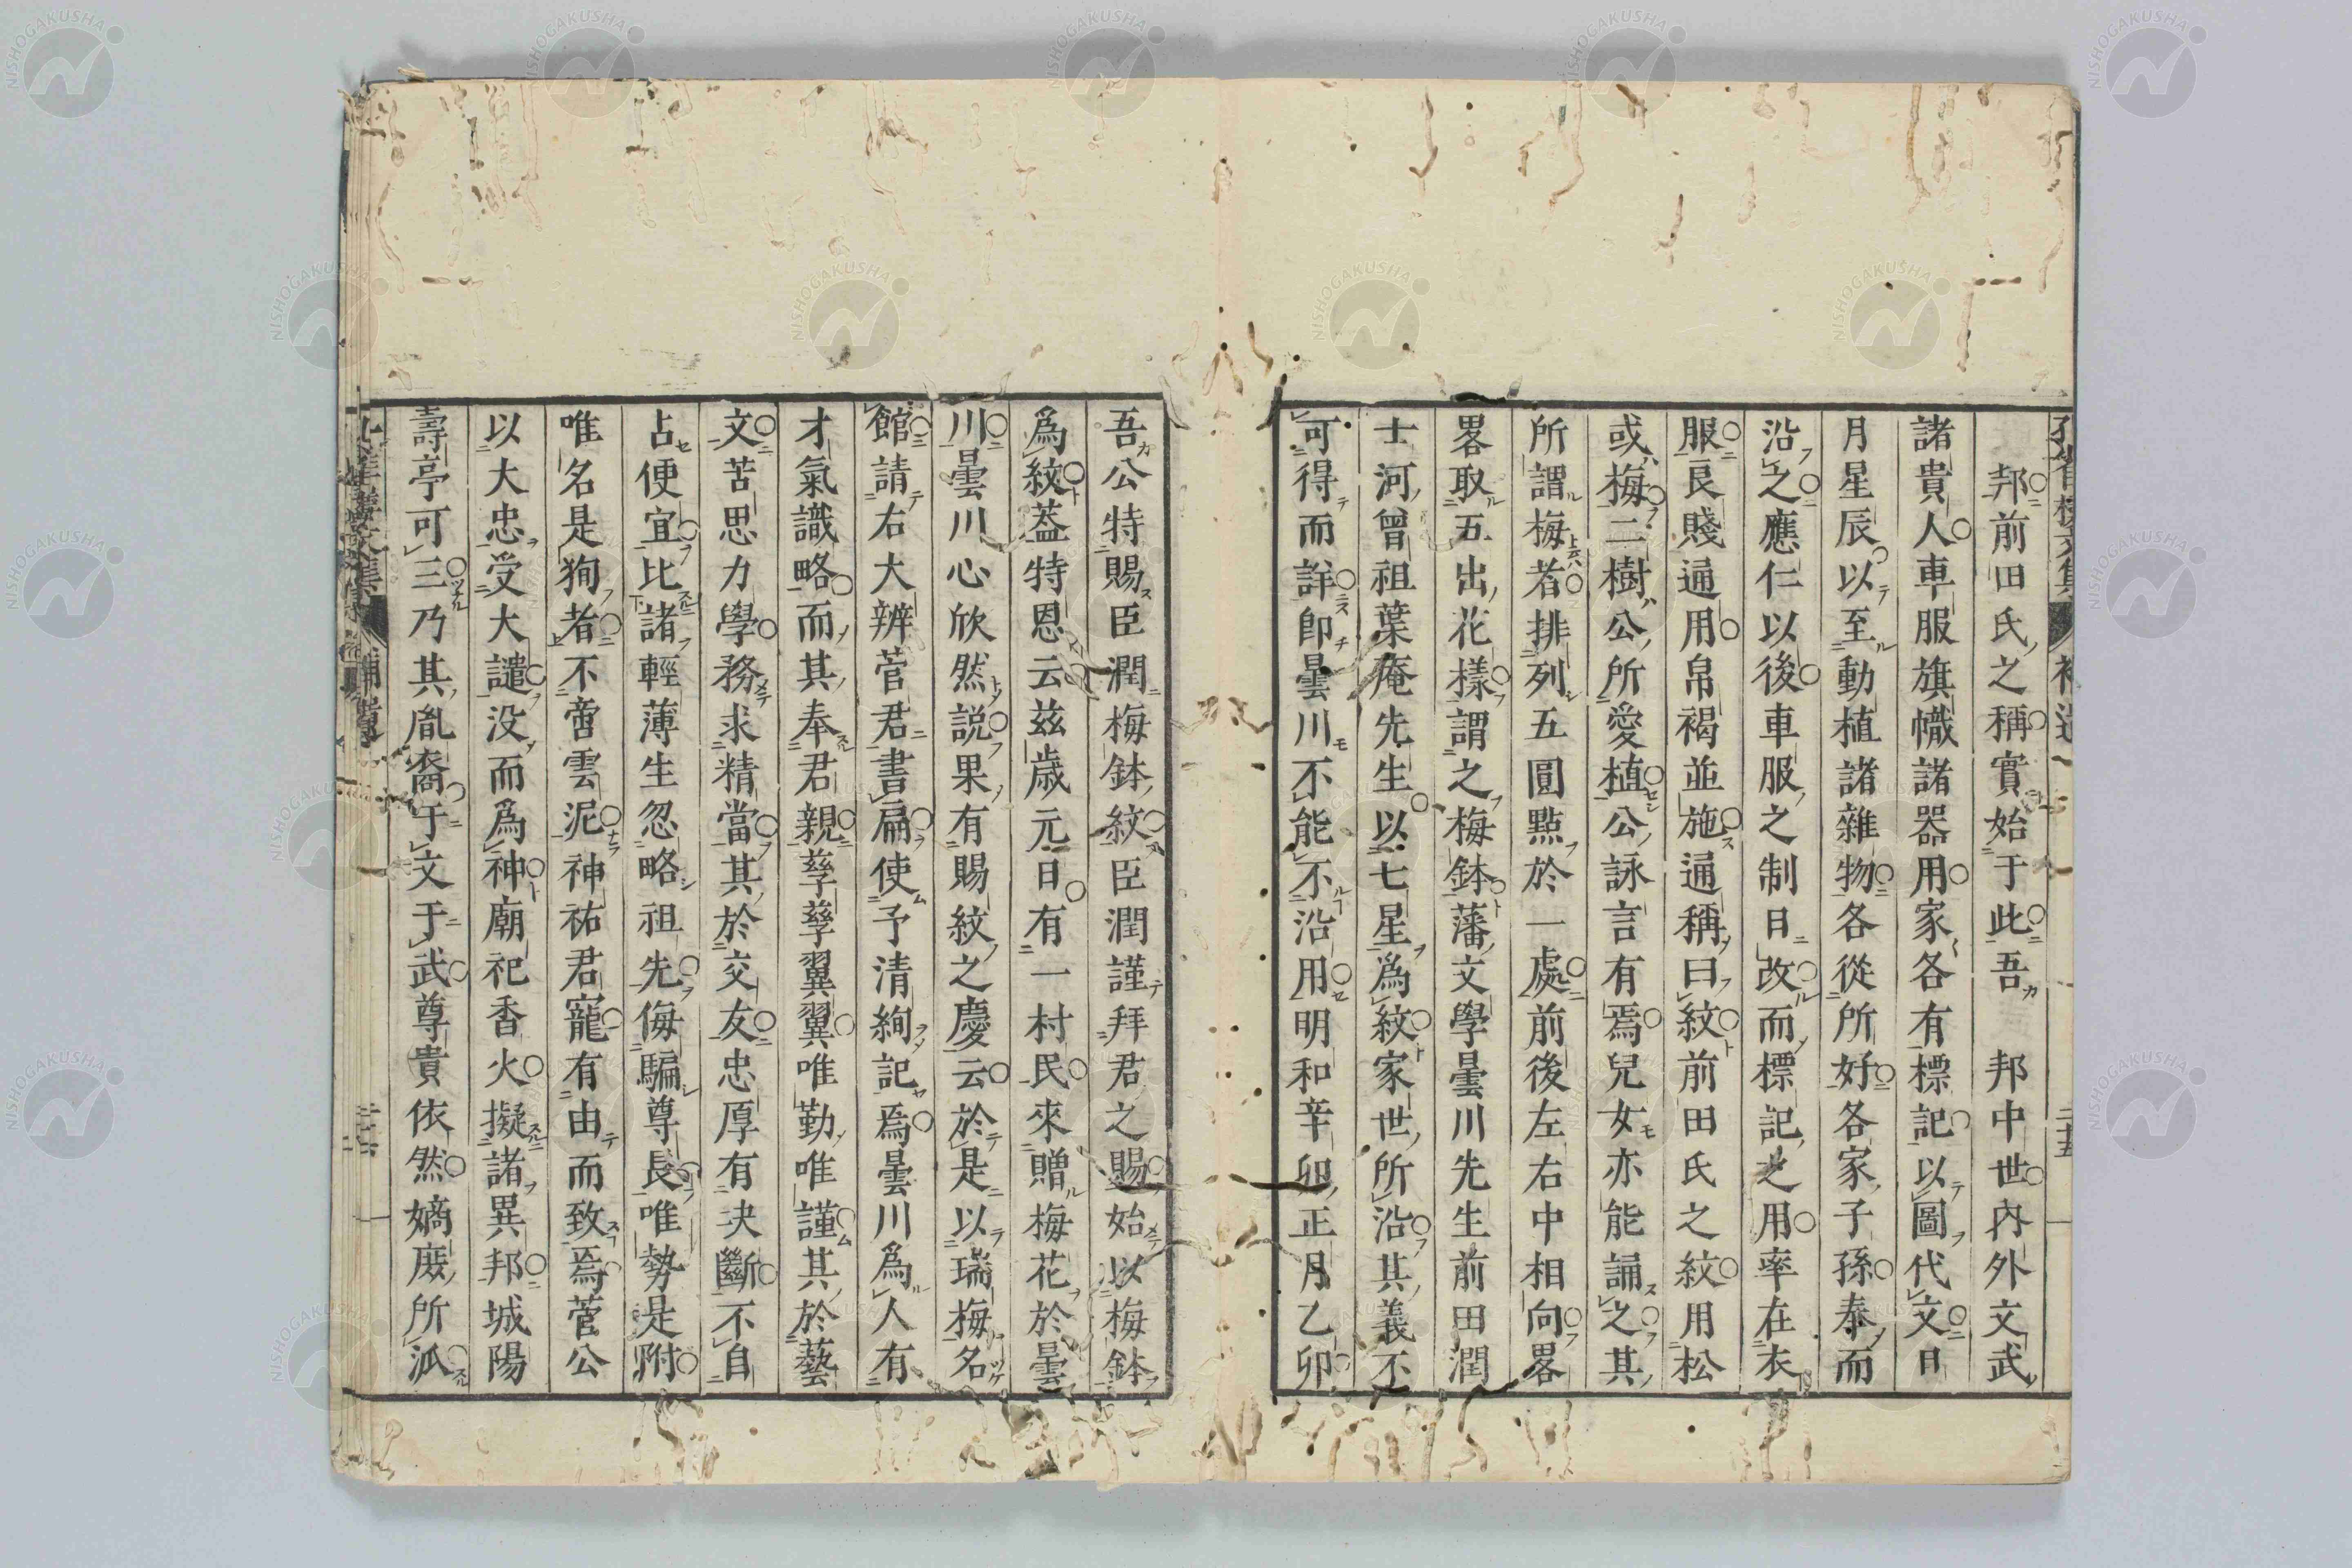 邦前田氏之稱實始于此吾　邦中世內外文武
諸貴人車服旗幟諸器用家各有標記以圖代文日
月星辰以至動植諸雜物各從所好各家子孫奉而
沿之應仁以後車服之制日改而標記之用率在衣
服良賤通用帛褐並施通稱曰紋前田氏之紋用松
或梅二樹公所愛植公詠言有焉兒女亦能誦之其
所謂梅者排列五圓點於一處前後左右中相向畧
畧取五出花樣謂之梅鉢藩文學曇川先生前田潤
士河曾祖葉庵先生以七星爲紋家世所沿其義不
可得而詳卽曇川不能不沿用明和辛卯正月乙卯
吾公特賜臣潤梅鉢紋臣潤謹拜君之賜始以梅鉢
爲紋葢特恩云茲歲元日有一村民來贈梅花於曇
川曇川心欣然說果有賜紋之慶云於是以瑞梅名
館請右大辨菅君書扁使予清絢記焉曇川爲人有
才氣識略而其奉君親孳孳翼翼唯勤唯謹其於藝
文苦思力學務求精當其於交友忠厚有决斷不自
占便宜比諸輕薄生忽略祖先侮騙尊長唯勢是附
唯名是狥者不啻雲泥神祐君寵有由而致焉菅公
以大忠受大譴没而爲神廟祀香火擬諸異邦城陽
壽亭可三乃其胤裔于文于武尊貴依然嫡庻所派
NISHOGAKUSHA